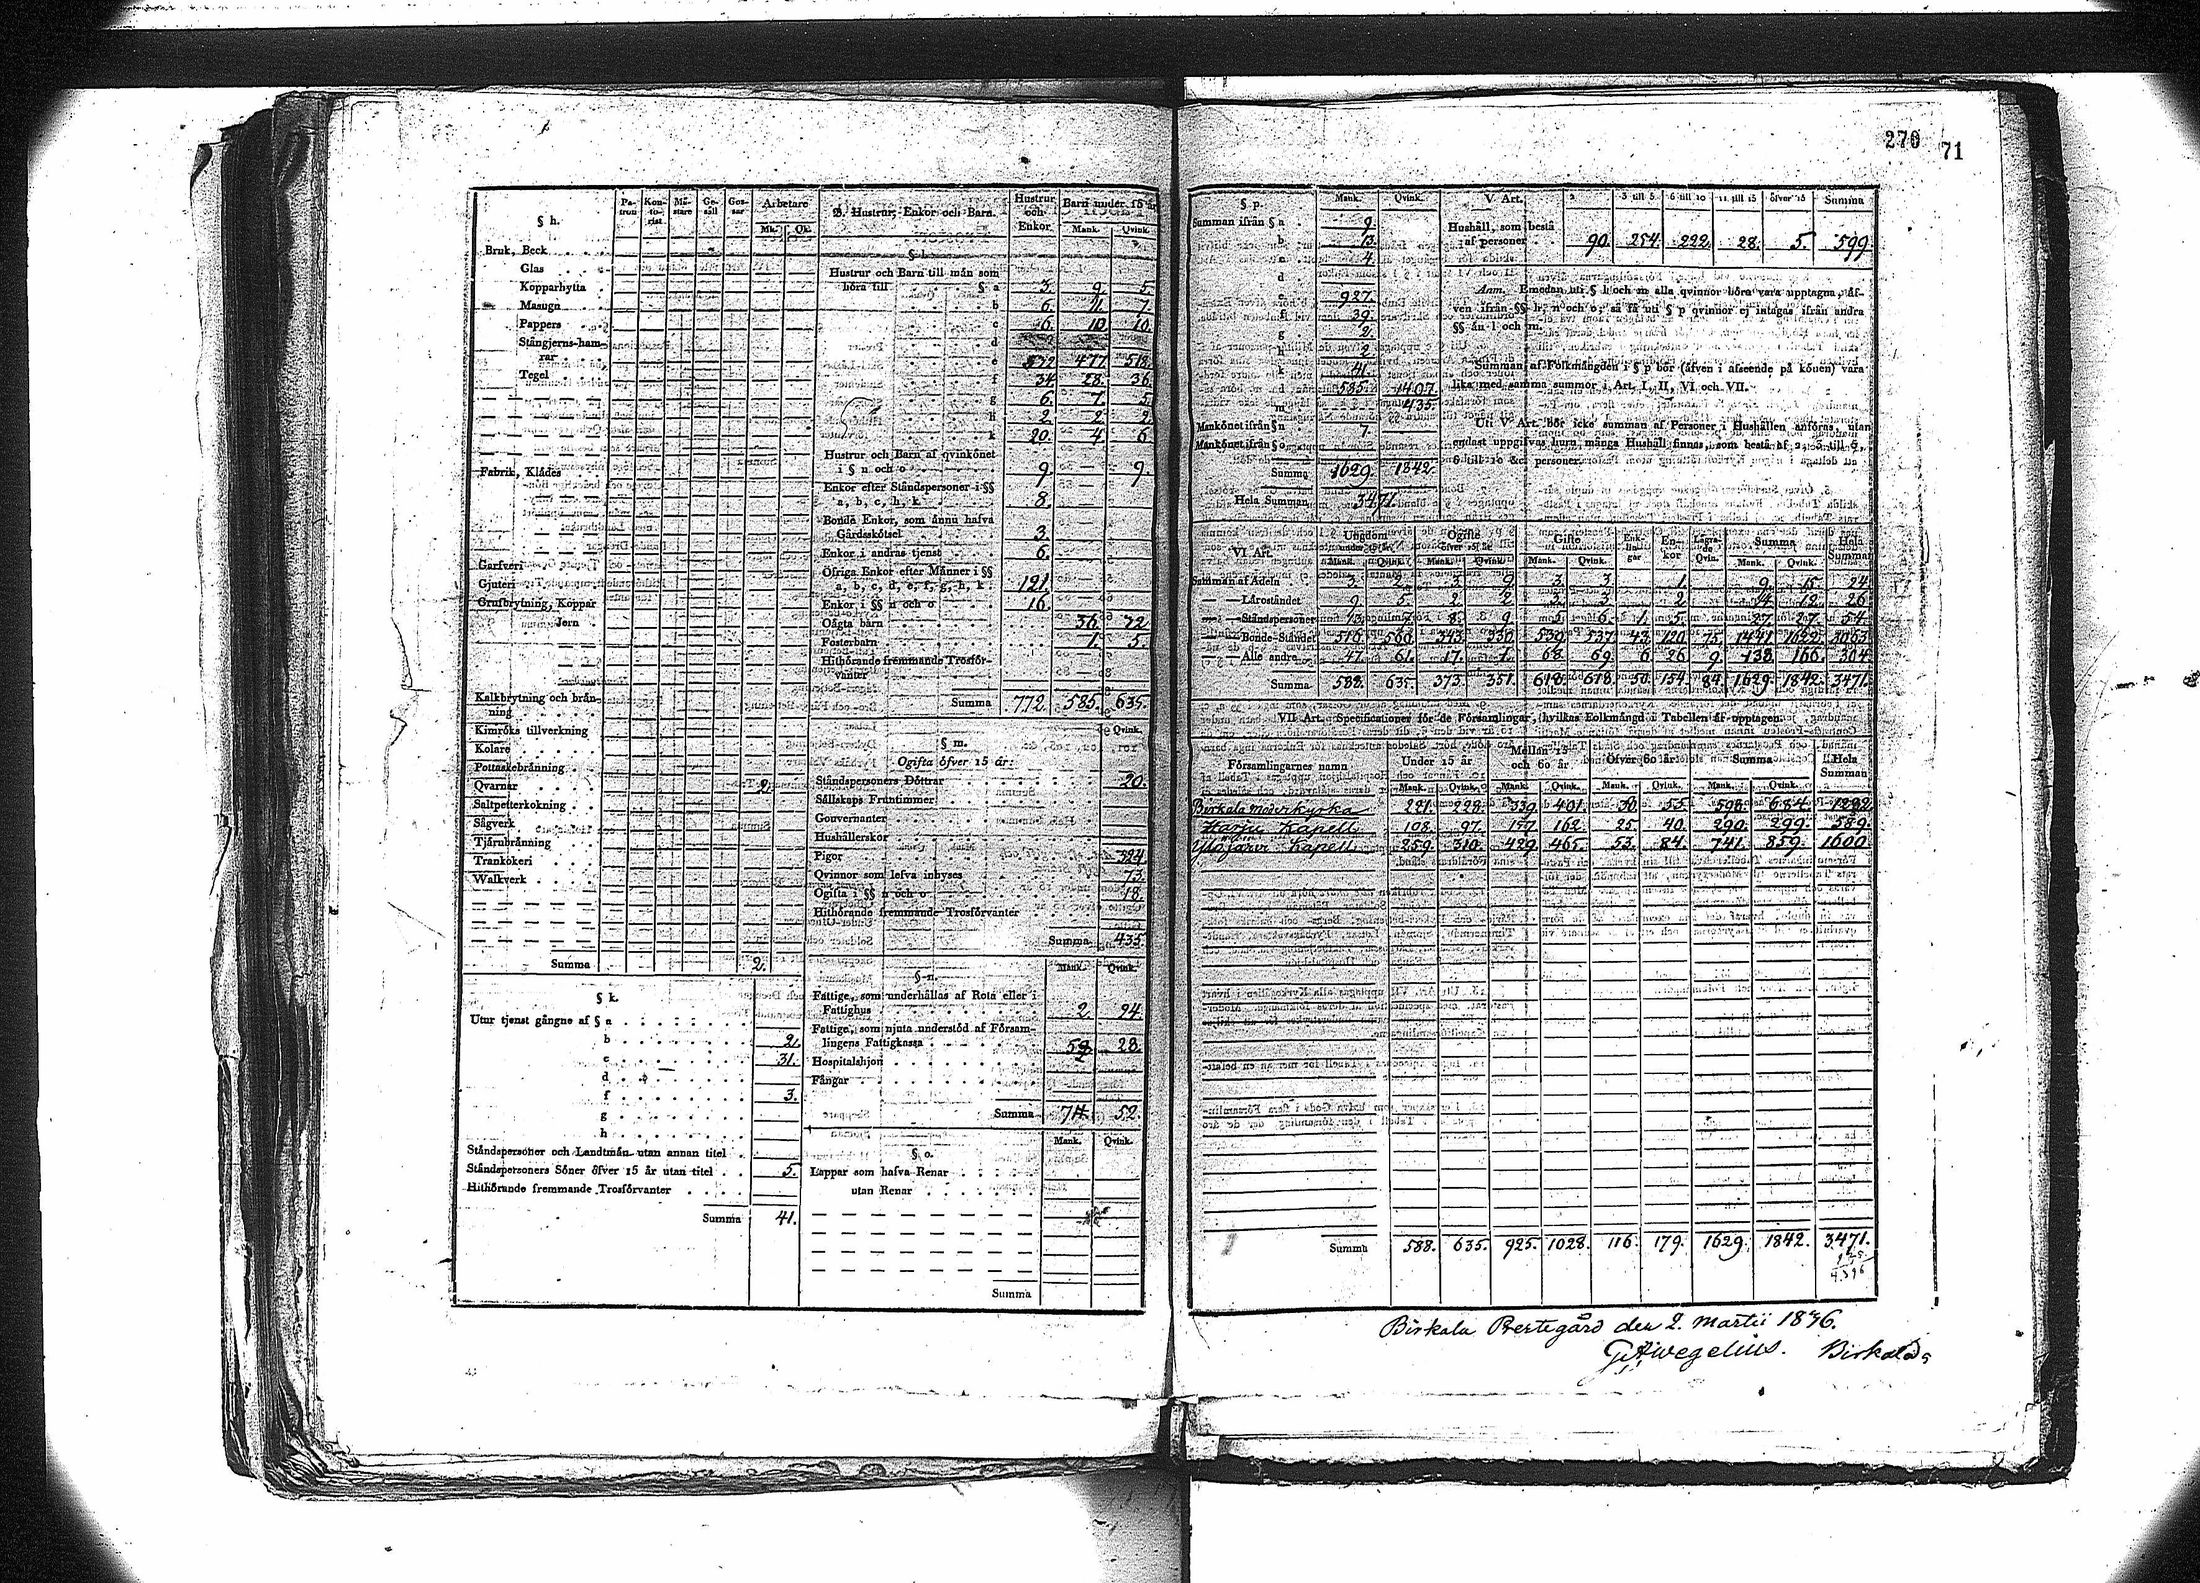 270
71
§ h.
Pa-tron Kon-to-rist Mä-stare Ge-säll Gos-sar Arbetare
Mk. Qk.
Bruk, Beck
Glas
Kopparhytta
Masugn
Pappers
Stångjerns-ham-
rar
Tegel
Fabrik, Klädes
Garfveri
Gjuteri
Grufbrytning, Koppar
Jern
Kalkbrytning och brän-
ning
Kimröks tillverkning
Kolare
Pottaskebränning
Qvarnar 2.
Saltpetterkokning
Sågverk
Tjärubränning
Trankokeri
Walkverk
Summa 2.
§ k.
Utur tjenst gångne af § a
b 2.
c 31.
d
f 3.
g
h
Ståndspersoner och Landtmän utan annan titel
Ståndspersoners Söner öfver 15 år utan titel 5.
Hithörande fremmande Trosförvanter
Summa 41.
D. Hustrur, Enkor och Barn. Hustrur och Enkor Barn under 15 år
Mank. Qvink.
§ l.
Hustrur och Barn till män som
höra till § a 3. 9. 5.
b 6. 11. 7.
c 6. 10. 10.
d
e 532 477 518.
f 34. 28. 36.
g 6. 7. 5.
h 2. 2. 2.
k 20. 4. 6.
Hustrur och Barn af qvinkönet
i § n och o 9. 9.
Enkor efter Ståndspersoner i §§
a, b, c, h, k 8.
Bonde Enkor, som ännu hafva
Gårdsskötsel 3.
Enkor i andras tjenst 6.
Öfriga Enkor efter Männer i §§
a, b, c, d, e, f, g, h, k 121.
Enkor i §§ n och o 16.
Oägta barn 36. 32.
Fosterbarn 1. 5.
Hithörande fremmande Trosför-
vanter
Summa 772. 585. 635.
§ m. Qvink.
Ogifta öfver 15 år:
Ståndspersoners Döttrar 20.
Sällskaps Fruntimmer
Gouvernanter
Hushållerskor
Pigor 324.
Qvinnor som lefva inhyses 73.
Ogifta i §§ n och o 18.
Hithörande fremmande Trosförvanter
Summa 435
§ n. Mank. Qvink.
Fattige, som underhållas af Rota eller i
Fattighus 2. 24.
Fattige, som njuta understöd af Försam-
lingens Fattigkassa 28.
Hospitalshjon
Fångar
Summa 52.
Mank. Qvink.
§ o.
Lappar som hafva Renar
utan Renar
Summa
§ p. Mank. Qvink.
Summan ifrån § a 9.
b 13.
c 4
d
e 927.
f 39.
g 2.
h 2.
k 41.
l 585. 1407.
m 435.
Mankönet ifrån § n 7.
Mankönet ifrån § o
Summa 1629. 1842.
Hela Summan 3471.
V. Art. 2 3 till 5 6 till 10 11 till 15 öfver 15 Summa
Hushåll, som bestå
af personer 90. 254. 222. 28. 5. 599
Anm. Emedan uti § l och m alla qvinnor böra vara upptagna, äf-
ven ifrån §§ h, n och o; så få uti § p qvinnor ej intagas ifrån andra
§§ än l och m.
Summan af Folkmängden i § p bör (äfven i afseende på könen) vara
lika med samma summor i Art. I, II, VI och VII.
Uti V Art. bör icke summan af Personer i Hushållen anföras, utan
endast uppgifvas huru många Hushåll finnas, som bestå af 2, 3 till 5,
6 till 10 &c. personer.
VI. Art. Ungdom under 15 år Ogifte öfver 15 år Gifte Enk-lin-gar En-kor Lägra-de Qvin. Summa Hela Summan
Mank. Qvink. Mank. Qvink. Mank. Qvink. Mank. Qvink.
Summan af Adeln 3. 2. 3. 9. 3. 3. 1. 9. 15. 24.
— — Läroståndet 9. 5. 2. 2. 3. 3. 2. 14. 12. 26
— — Ståndspersoner 13. 7. 8. 9. 5. 6. 1. 5. 27. 27. 54.
— — Bonde-Ståndet 516. 560. 343. 330. 539. 537. 43. 120. 75. 1441. 1622. 3063
— — Alle andre 47. 61. 17. 1. 68. 69. 6. 26 9. 138. 166. 304
Summa 588. 635. 373. 351. 618. 618. 50. 154. 84. 1629. 1842. 3471.
VII Art. Specificationer för de Församlingar, hvilkas Folkmängd i Tabellen är upptagen.
Församlingarnes namn Under 15 år Mellan 15 och 60 år Öfver 60 år Summa Hela Summan
Mank. Qvink. Mank. Qvink. Mank. Qvink. Mank. Qvink.
Birkala Moderkyrka 221. 228. 339. 401. 38. 55. 598. 684. 1282
Harju Kapell 108. 97. 157. 162. 25. 40. 290. 299. 589.
Ylöjärvi Kapell 259. 310. 429. 465. 53. 84. 741. 859. 1600
Summa 588. 635. 925. 1028. 116. 179. 1629. 1842. 3471.
Birkala Prestegård den 2. Martii 1846.
G A Wegelius. Birkala